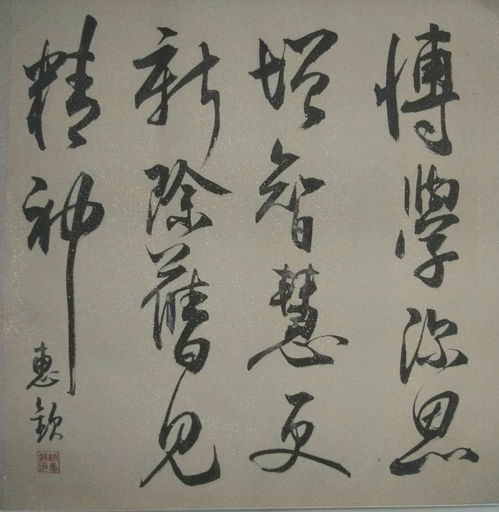 博學深思
增智慧更
新除舊見
精神
惠欽